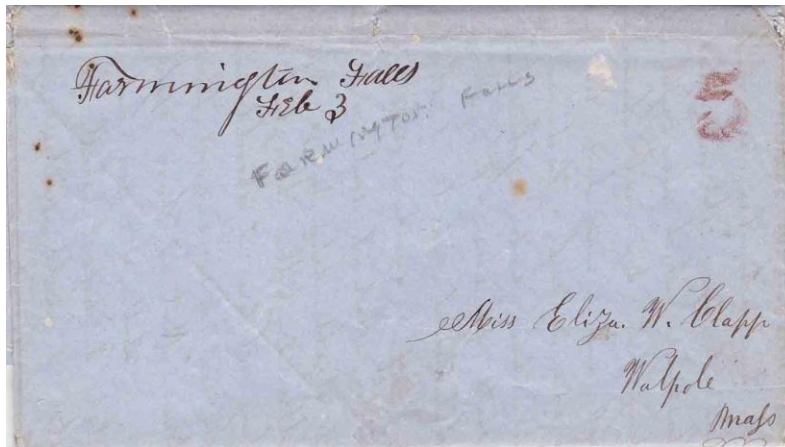 Farmington Falls
Feb 3
5
Farmington Falls
Miss Eliza. W. Clapp
Walpole
Mass